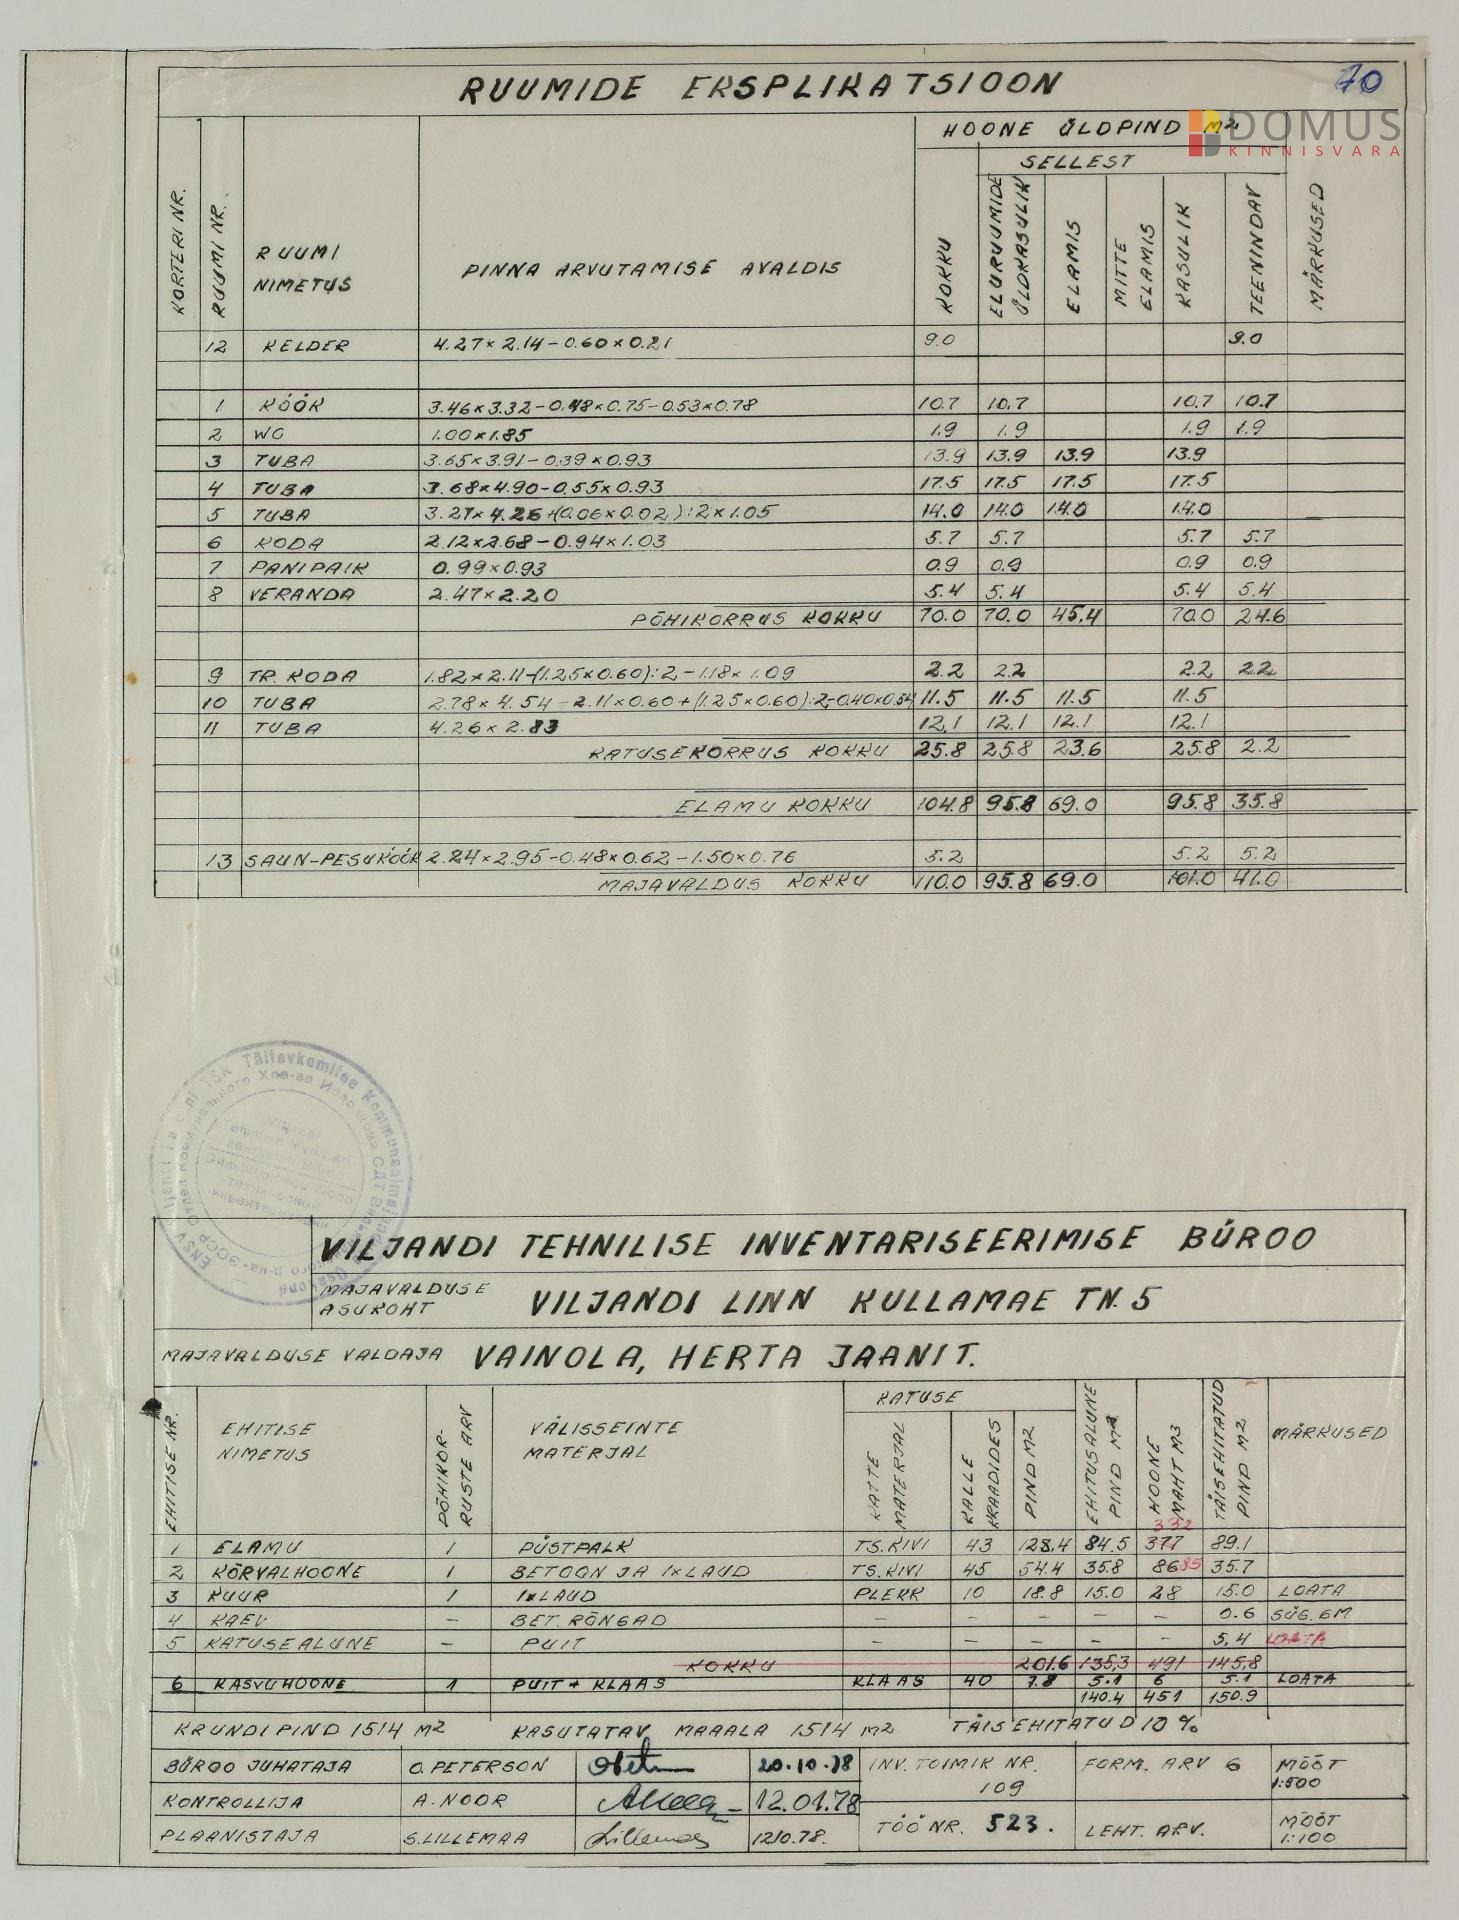 RUUMIDE EKSPLIKATSIOON
70
DOMUS
KINNISVARA
KORTERI NR.
RUUMI NR.
RUUMI NIMETUS
PINNA ARVUTAMISE AVALDIS
HOONE ÜLDPIND M2
SELLEST
KOKKU
ELURUUMIDE ÜLDKASULIK
ELAMIS
MITTE ELAMIS
KASULIK
TEENINDAV
MÄRKUSED
12 KELDER 4.27×2.14-0.60×0.21 9.0 9.0
1 KÖÖK 3.46×3.32-0.48×0.75-0.53×0.78 10.7 10.7 10.7 10.7
2 WC 1.00×1.85 1.9 1.9 1.9 1.9
3 TUBA 3.65×3.91-0.39×0.93 13.9 13.9 13.9 13.9
4 TUBA 3.68×4.90-0.55×0.93 17.5 17.5 17.5 17.5
5 TUBA 3.27×4.26+(0.06×0.02):2×1.05 14.0 14.0 14.0 14.0
6 KODA 2.12×2.68-0.94×1.03 5.7 5.7 5.7 5.7
7 PANIPAIK 0.99×0.93 0.9 0.9 0.9 0.9
8 VERANDA 2.47×2.20 5.4 5.4 5.4 5.4
PÕHIKORRUS KOKKU 70.0 70.0 45.4 70.0 24.6
9 TR. KODA 1.82×2.11-(1.25×0.60):2-1.18×1.09 2.2 2.2 2.2 2.2
10 TUBA 2.78×4.54-2.11×0.60+(1.25×0.60):2-0.40×0.54 11.5 11.5 11.5 11.5
11 TUBA 4.26×2.83 12.1 12.1 12.1 12.1
KATUSEKORRUS KOKKU 25.8 25.8 23.6 25.8 2.2
ELAMU KOKKU 104.8 95.8 69.0 95.8 35.8
13 SAUN-PESUKÖÖK 2.24×2.95-0.48×0.62-1.50×0.76 5.2 5.2 5.2
MAJAVALDUS KOKKU 110.0 95.8 69.0 101.0 41.0
VILJANDI TEHNILISE INVENTARISEERIMISE BÜROO
MAJAVALDUSE ASUKOHT VILJANDI LINN KULLAMAE TN. 5
MAJAVALDUSE VALDAJA VAINOLA, HERTA JAANI T.
EHITISE NR.
EHITISE NIMETUS
PÕHIKOR-RUSTE ARV
VÄLISSEINTE MATERJAL
KATUSE
KATTE MATERJAL
KALLE KRAADIDES
PIND M2
EHITUSALUNE PIND M2
HOONE MAHT M3
TÄISEHITATUD PIND M2
MÄRKUSED
332
1 ELAMU 1 PÜSTPALK TS.KIVI 43 128,4 84.5 377 89.1
2 KÕRVALHOONE 1 BETOON JA 1×LAUD TS.KIVI 45 54.4 35.8 86 85 35.7
3 KUUR 1 1×LAUD PLEKK 10 18.8 15.0 28 15.0 LOATA
4 KAEV - BET. RÕNGAD - - - - - 0.6 SÜG. 6M
5 KATUSEALUNE - PUIT - - - - - 5.4 LOATA
KOKKU 201.6 135,3 491 145,8
6 KASVUHOONE 1 PUIT + KLAAS KLAAS 40 7.8 5.1 6 5.1 LOATA
140.4 451 150.9
KRUNDI PIND 1514 M2 KASUTATAV MAAALA 1514 M2 TÄISEHITATUD 10 %
BÜROO JUHATAJA O. PETERSON 20.10.78 INV. TOIMIK NR. 109 FORM. ARV 6 MÕÕT 1:500
KONTROLLIJA A. NOOR 12.01.78
PLAANISTAJA S. LILLEMAA 12.10.78. TÖÖ NR. 523. LEHT. ARV. MÕÕT 1:100